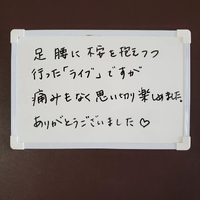 足腰に不安を抱えつつ
行った「ライブ」ですが
痛みもなく思い切り楽しめました。
ありがとうございました♡